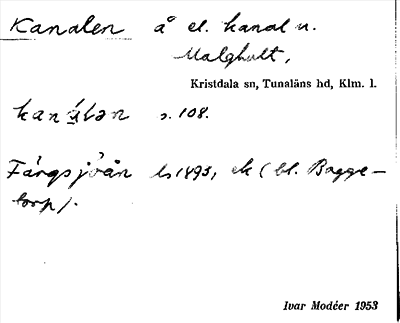 Kanalen å el. kanal n.
Malghult,
Kristdala sn, Tunaläns hd, Klm. l.
kanálən s. 108.
Färgsjöån ls 1893, ek (bl. Bagge-
torp).
Ivar Modéer 1953